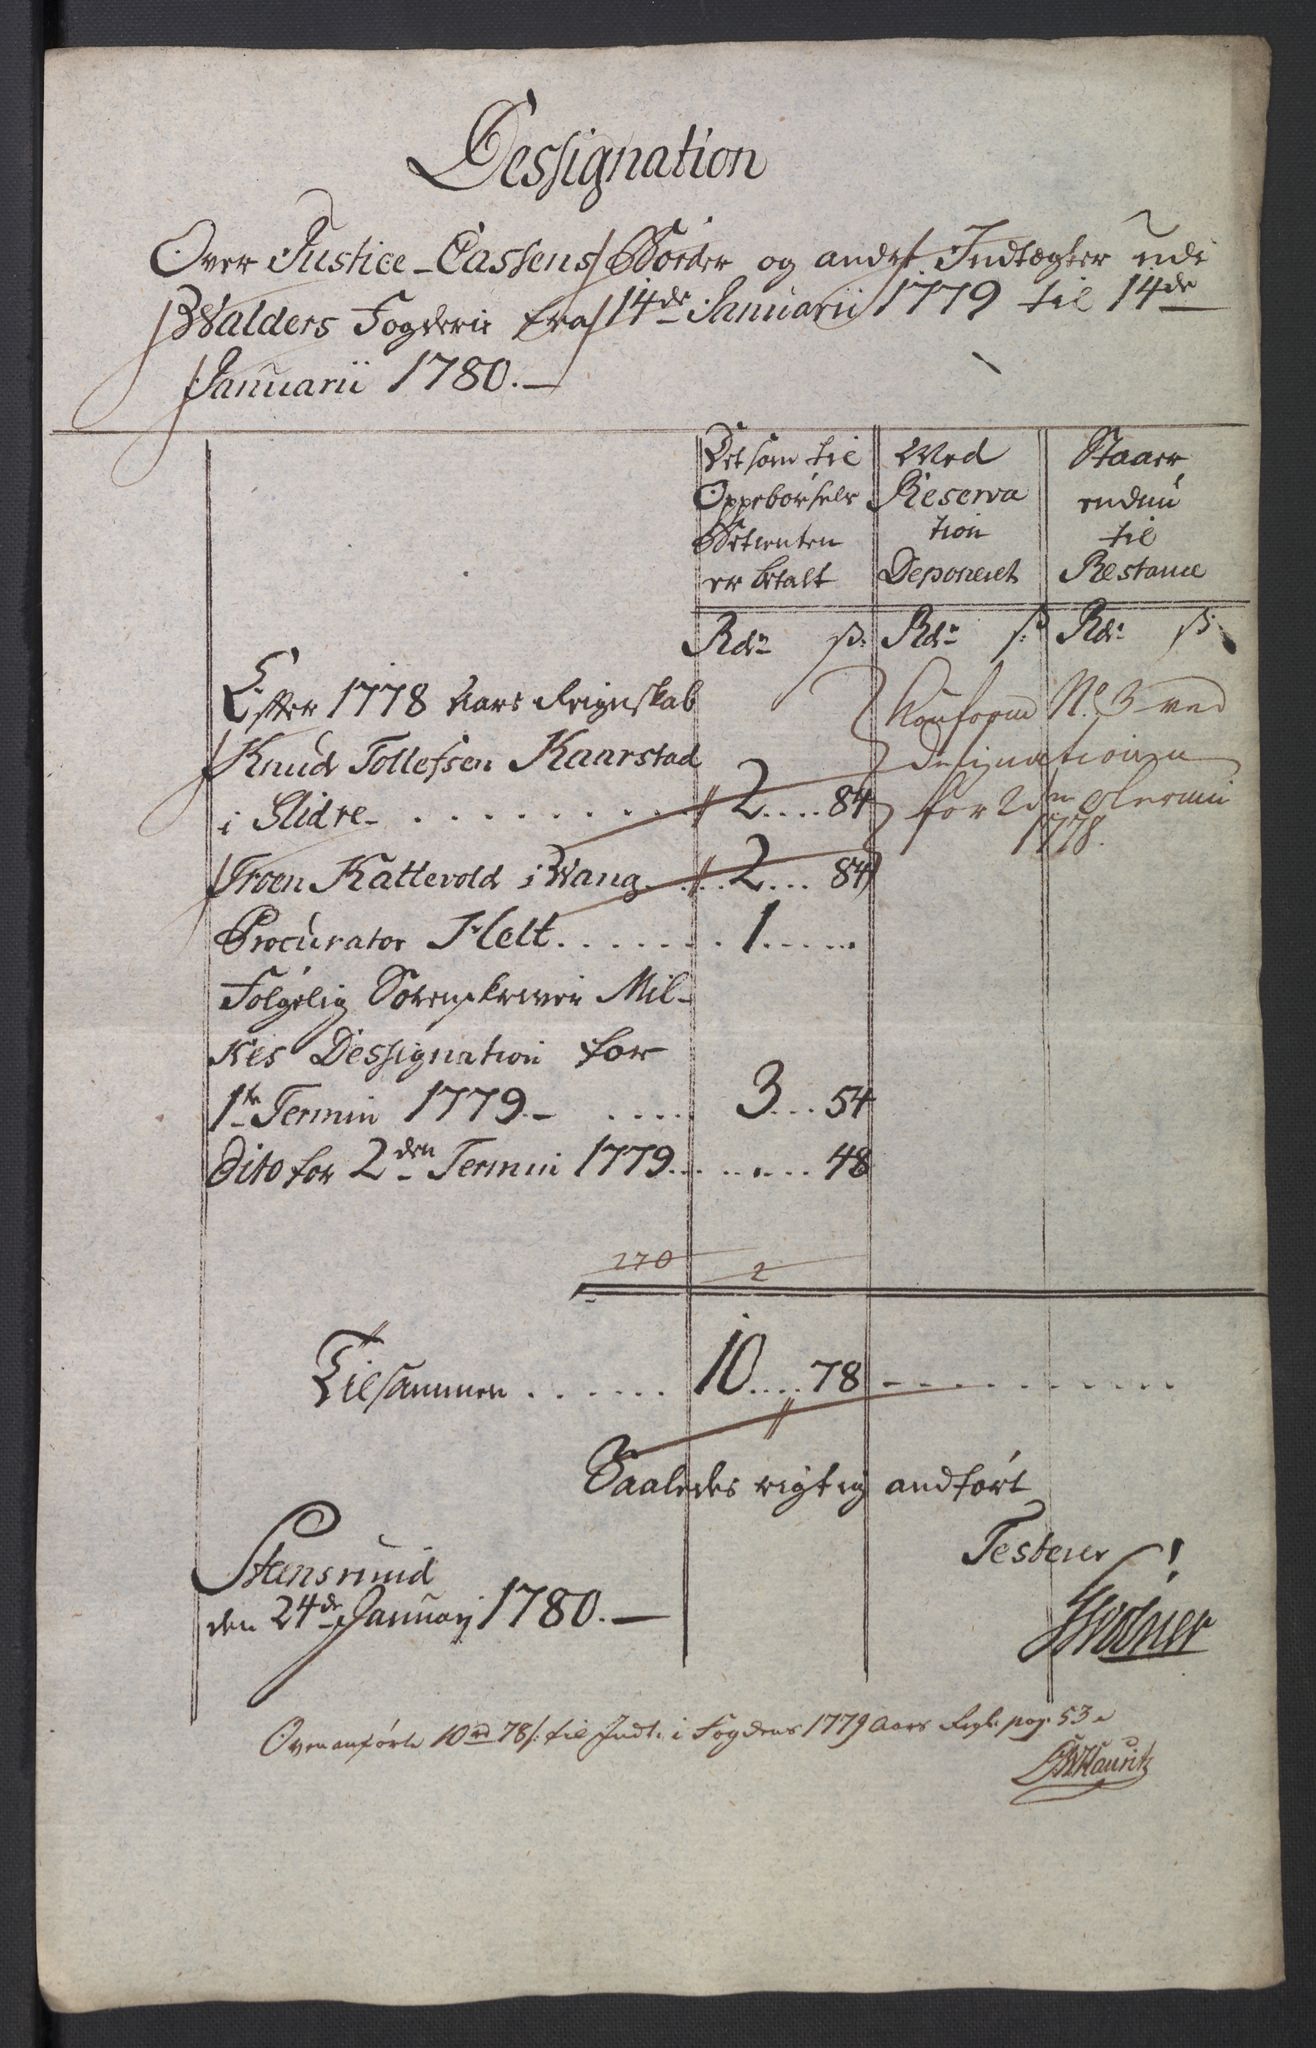 Dessignation
Over Justice-Cassens Bøder og andet Indtægter udi
Walders Fogderie fra 14de Januarii 1779 til 14de
Januarii 1780.
Det som til Oppebørsels Betienten er betalt
Med Reserva tion Deponeret
Staaer endnu til Restance
Rdr ß: Rdr ß: Rdr ß:
Efter 1778 Aars Reignskab
Conform No 3 ved
Knud Tollefsen Kaarstad
Designationen
i Slidre . . . . . . . . . 2 .... 84
for 2den Termin
1778.
Troen Kattevold i Wang. . . . 2 .... 84
Procurator Helt . . . . . . . 1 . . . . .
Følgelig Sorenskriver Mil-
kes Dessignation for
1te Termin 1779 - . . . . . 3 ... 54
Dito for 2den Termin 1779 . . . . . . . 48
270 2
Tilsammen . . . . . . 10 .... 78 - - - - - - - - - -
Saaledes rigtig andført
Stensrud
Testerer
den 24de Januarj 1780. -
Ovenanførte 10 rd 78 s: til Indt. i Fogdens 1779 Aars Regl: pag: 53